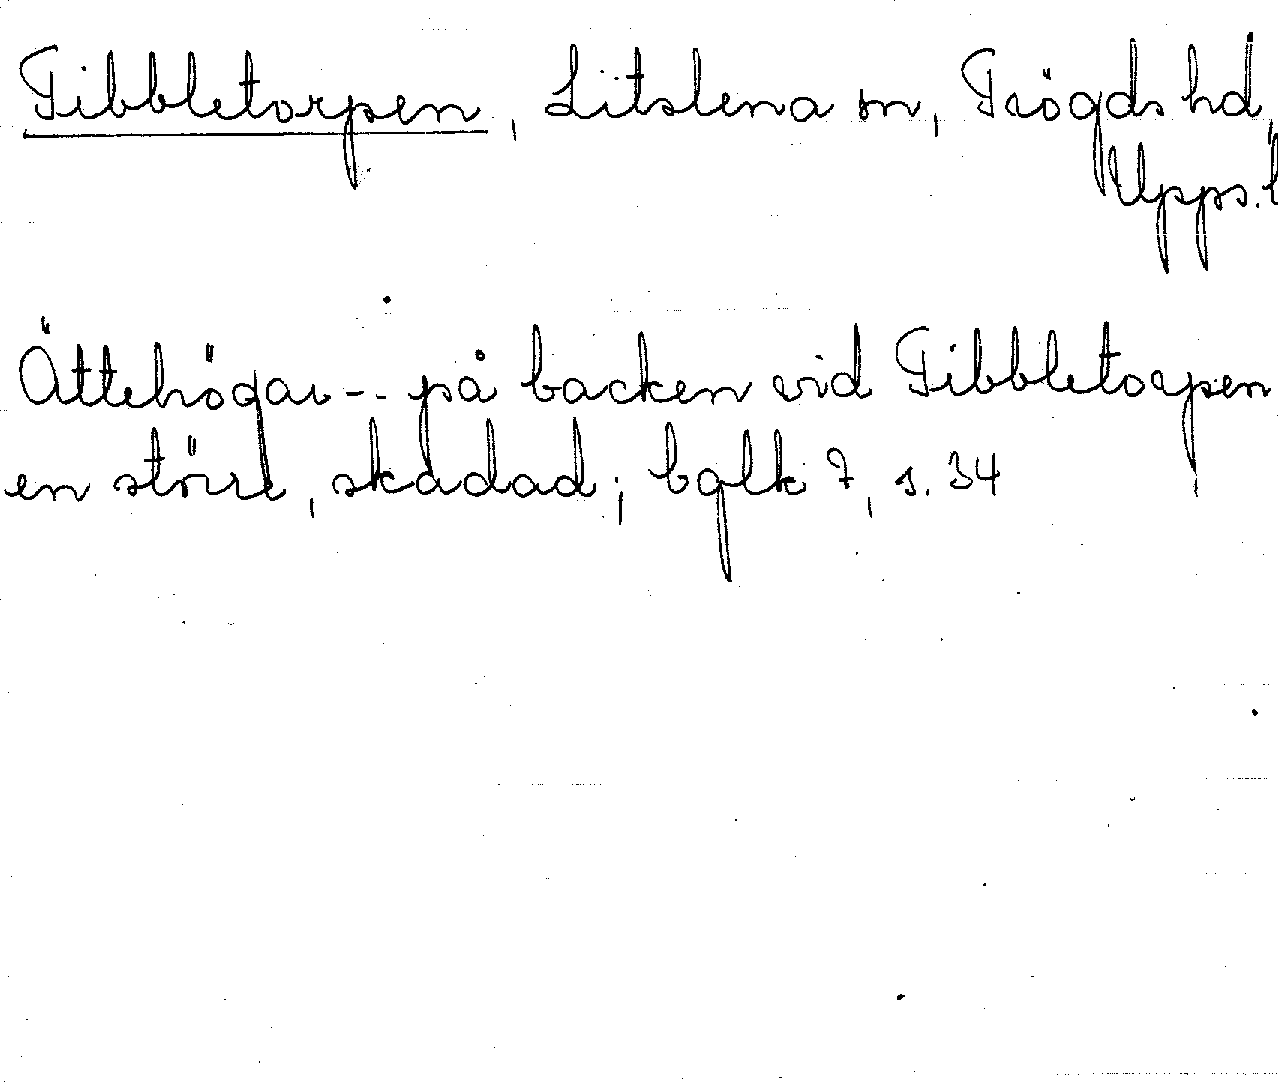 Tibbletorpen, Litslena sn, Trögds hd,
Upps. l
Ättehögar -- på backen vid Tibbletorpen
en större, skadad; bqlk 7, s. 34